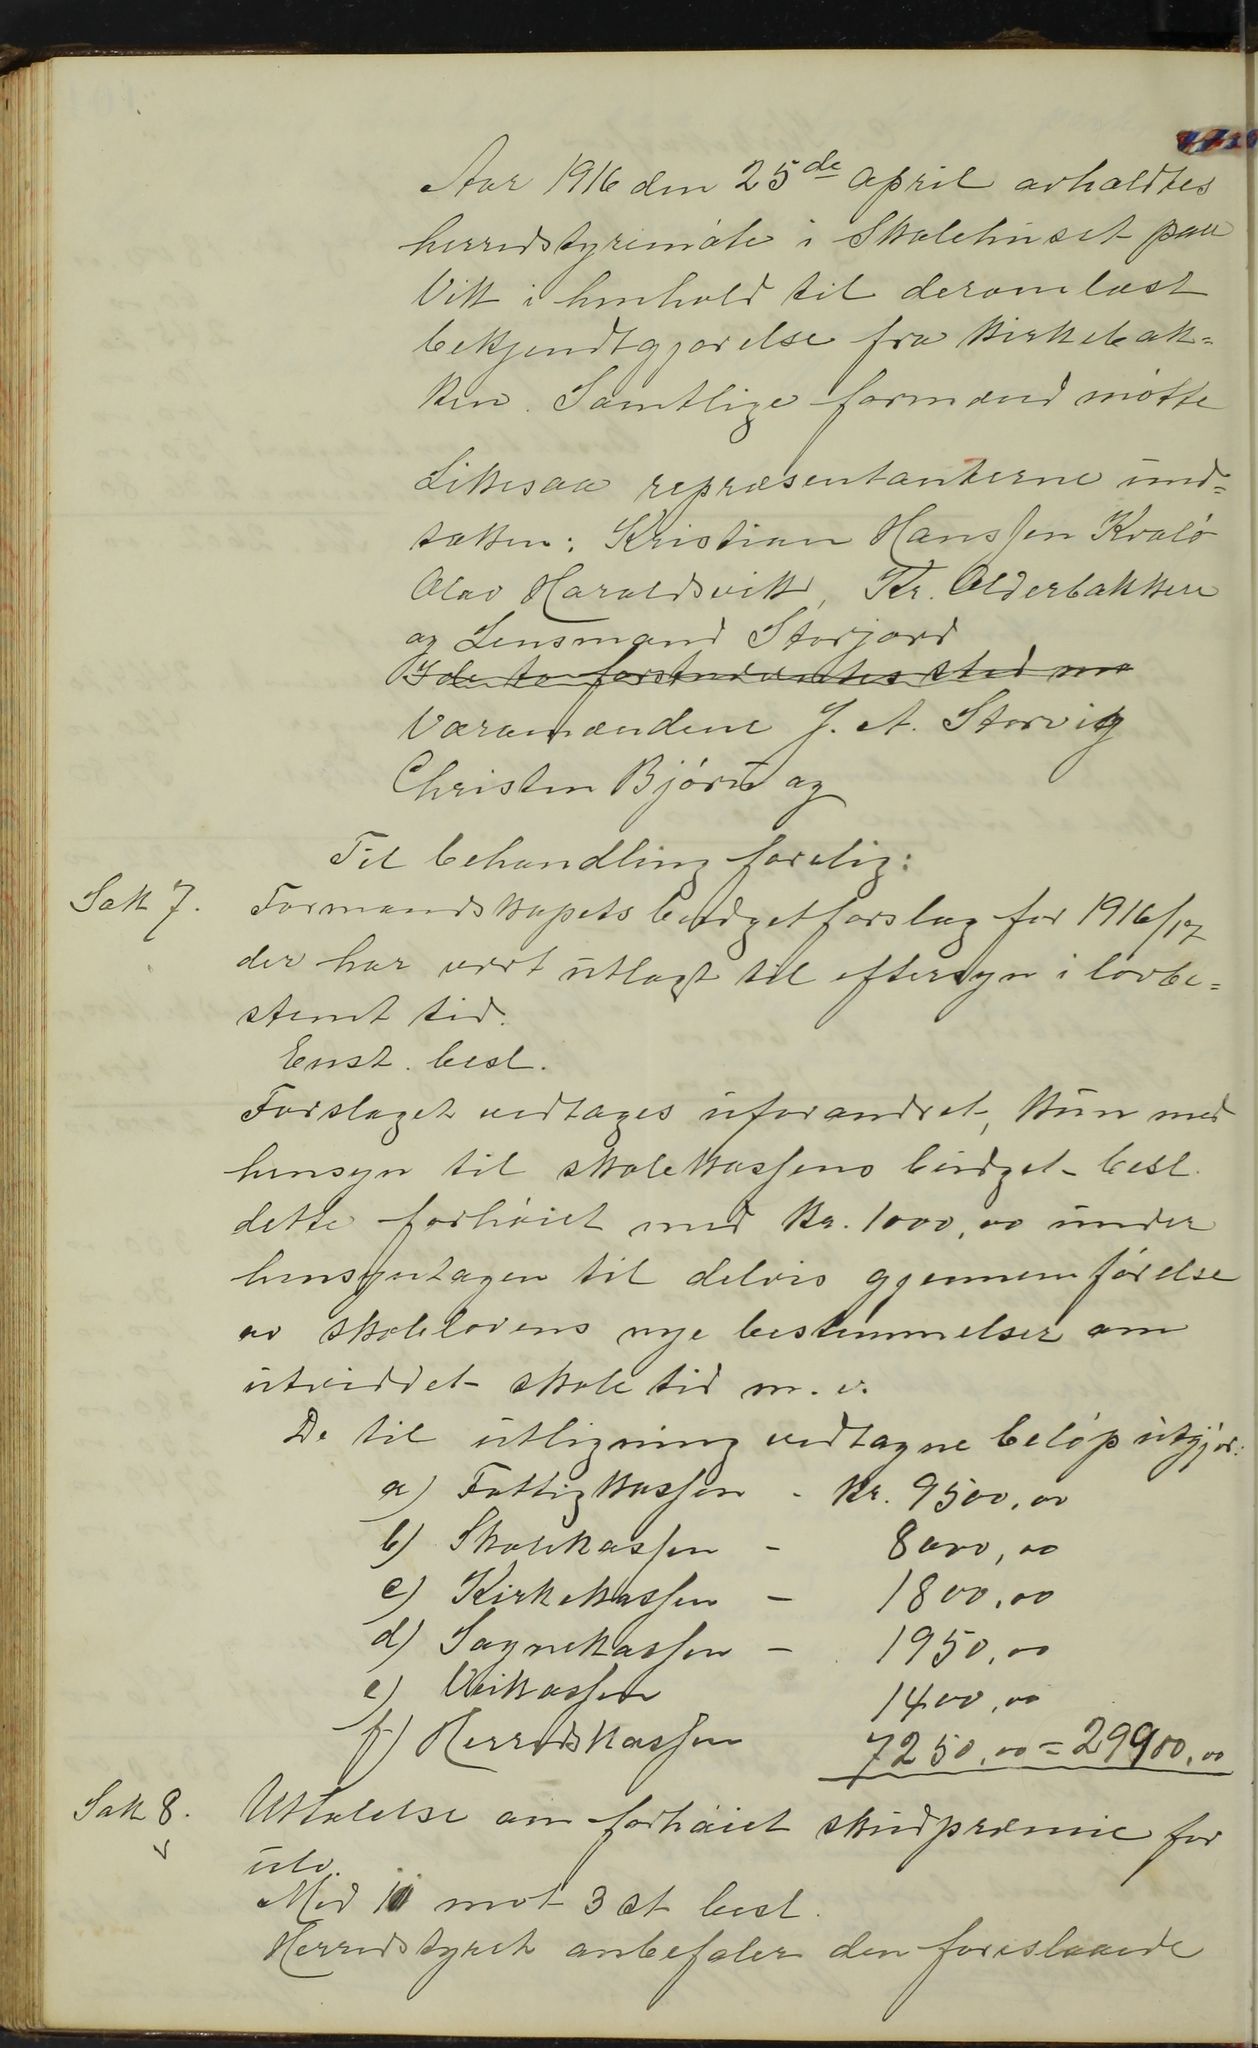 Aar 1916 den 25de April avholdtes
herredstyremöte i Skolehuset paa
Vik i henhold til derom læst
bekjendtgjørelse fra Kirkebak=
ken. Samtlige formænd mötte
Likesaa repræsentanterne und=
taken: Kristian Hanssen Kvalö
Olav Haraldsvik, Kr. Olderbakken
og Lensmand Storjord
I de to forstnævntes sted mø
Varamændene J. A. Storvig
Christen Björn og
Til behandling forelig:
Sak 7. Formandskapets budgetforslag for 1916/17
der har vært utlagt til eftersyn i lovbe=
stemt tid.
Enst. besl.
Forslaget vedtages uforandret, kun med
hensyn til skolekassens budget besl.
dette forhöiet med kr. 1000,00 under
hensyntagen til delvis gjennemförelse
av skolelovens nye bestemmelser om
utviddet skoletid m. v.
De til utligning vedtagne belöp utgjör:
a) Fattigkassen - kr. 9500,00
b) Skolekassen - 8000,00
c) Kirkekassen - 1800,00
d) Sognekassen - 1950,00
e) Veikassen 1400,00
f) Herredskassen 7250,00 = 29900,00
Sak 8. Uttalelse om forhöiet skudpræmie for
ulv.
Med 11 mot 3 st besl.
Herredstyret anbefaler den foreslaaede